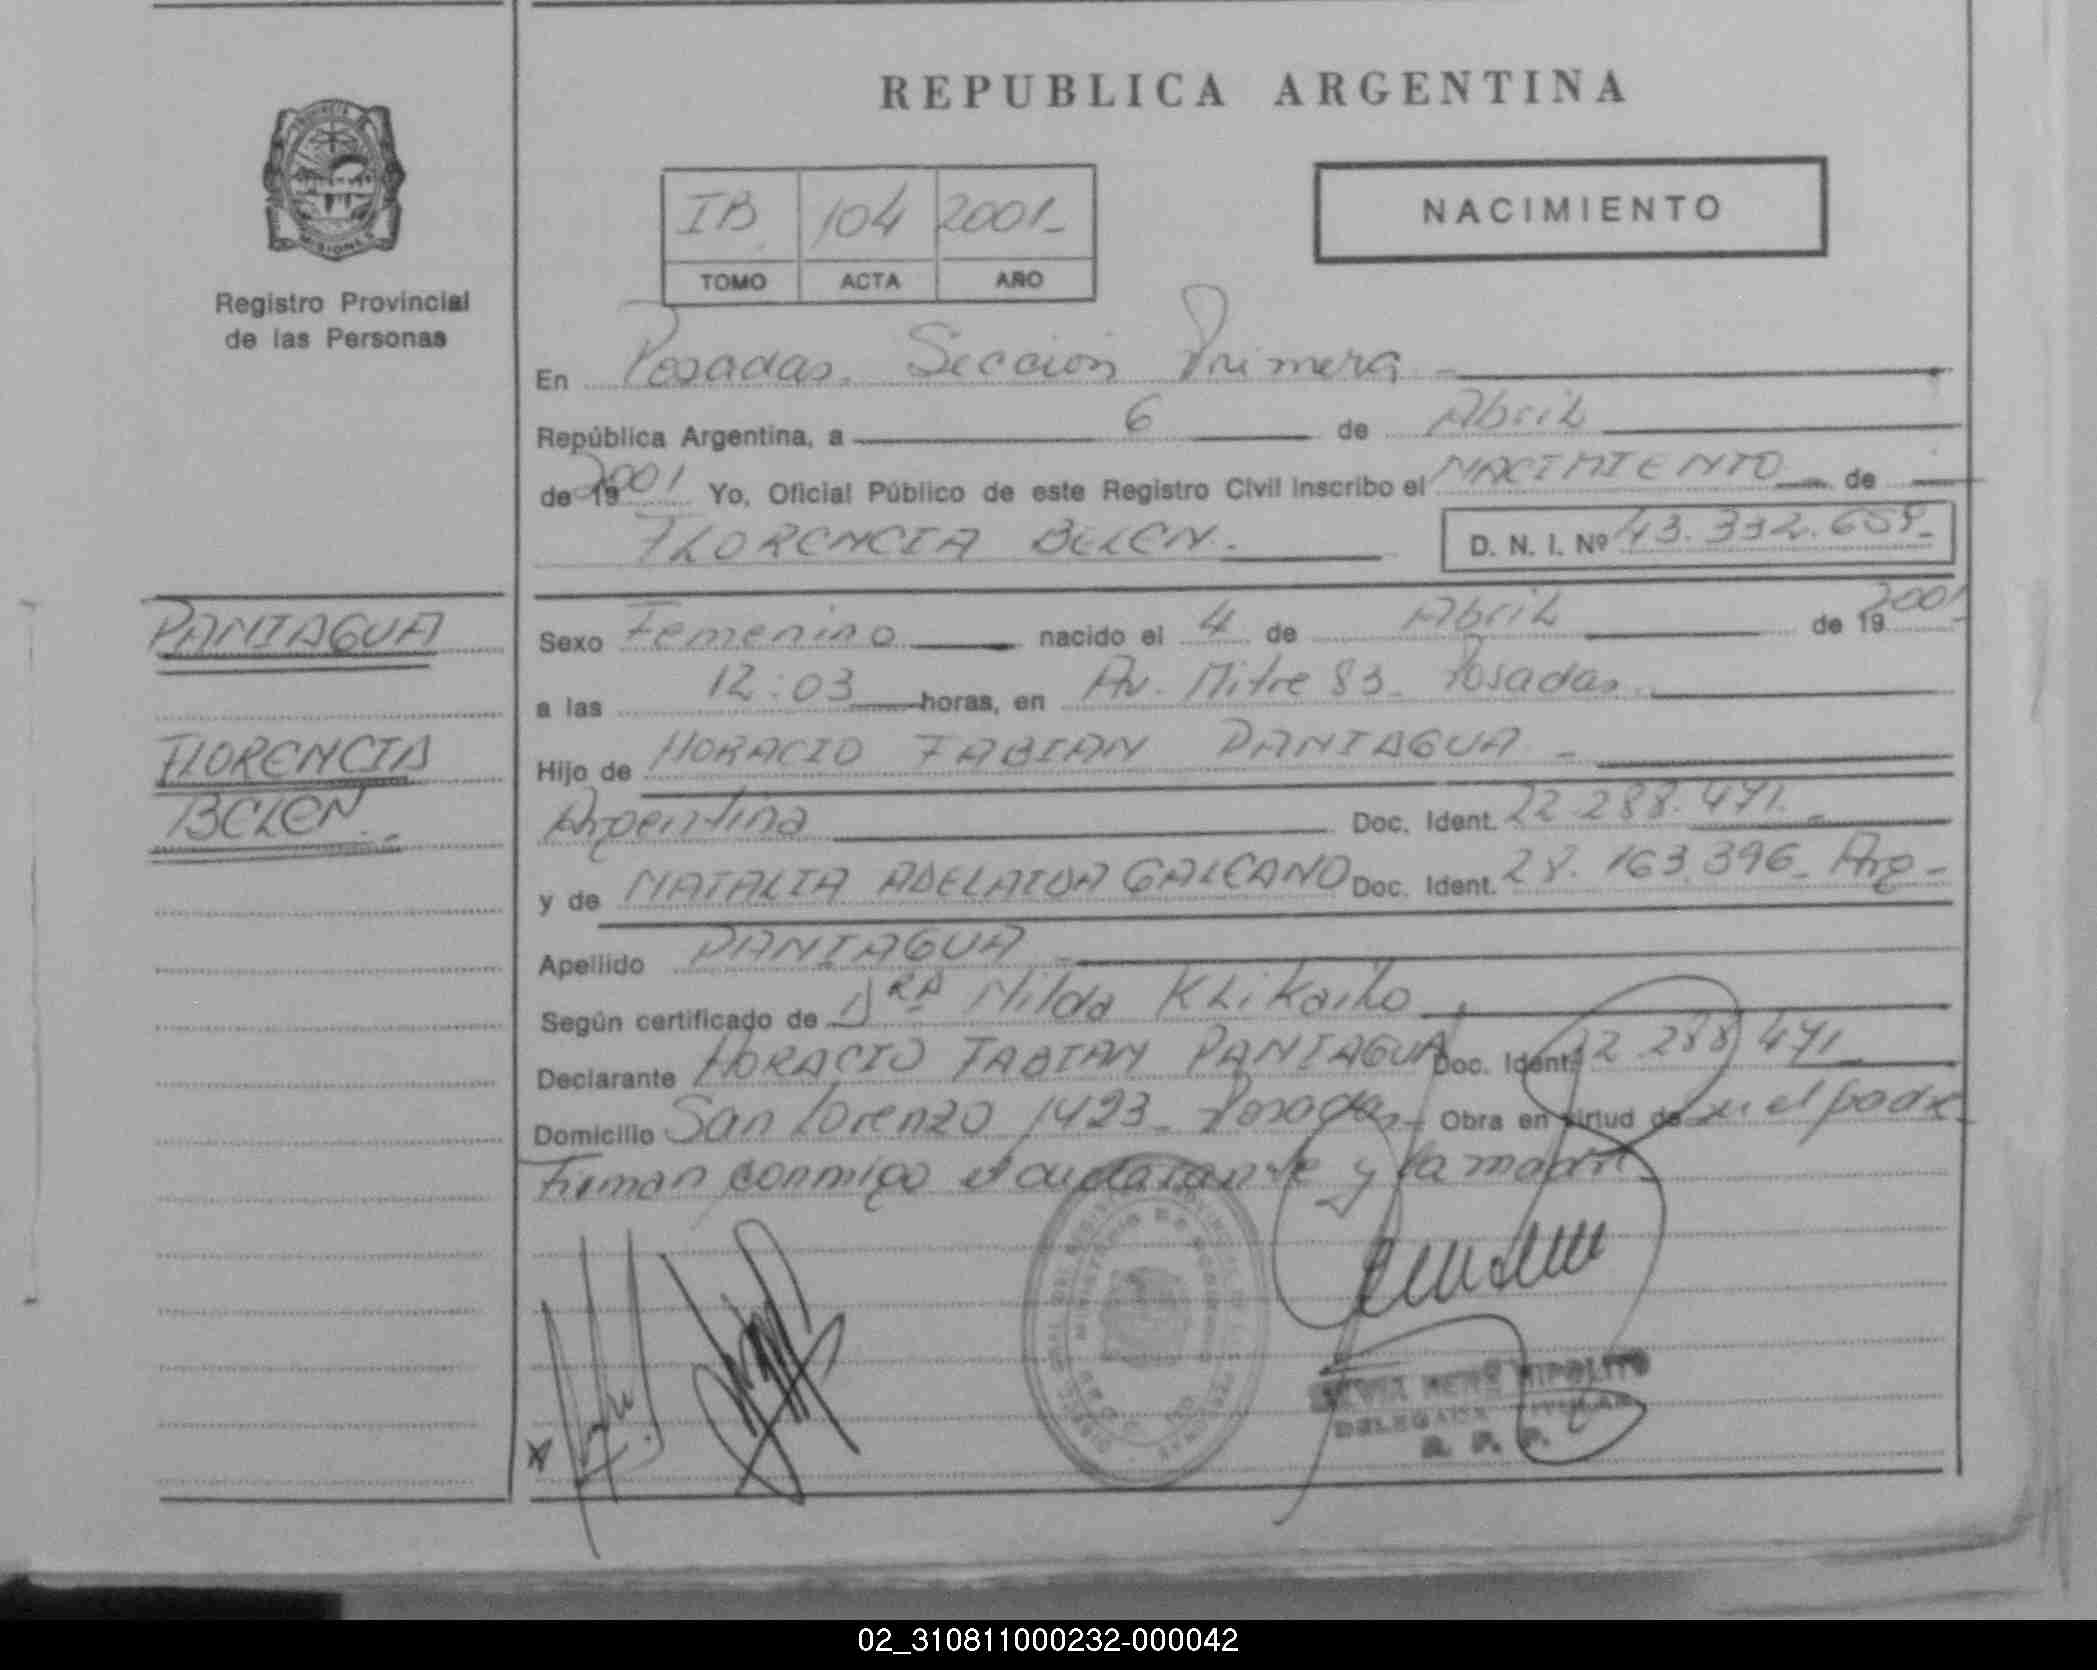 REPUBLICA ARGENTINA
IB 104 2001
TOMO ACTA AÑO
NACIMIENTO
Registro Provincial
de las Personas
En Posadas. Sección Primera
República Argentina, a 6 de Abril
de 19 2001 Yo, Oficial Público de este Registro Civil inscribo el NACIMIENTO de
FLORENCIA BELEN. D. N. I. Nº 43.332.659
PANIAGUA
FLORENCIA
BELEN
Sexo Femenino nacido el 4 de Abril de 19 2001
a las 12:03 horas, en Av. Mitre 83. Posadas.
Hijo de HORACIO FABIAN PANIAGUA
Argentina Doc. Ident. 22.288.471
y de NATALIA ADELAIDA GALEANO Doc. Ident. 28.163.396 Arg
Apellido PANIAGUA
Según certificado de DRA Nilda Klikailo
Declarante HORACIO FABIAN PANIAGUA Doc. Ident. 22 288 471
Domicilio San Lorenzo 1423 Posadas Obra en virtud de ser el padre
Firman conmigo el declarante y la madre
HIPOLITO
DELEGADA TITULAR
R. P. P.
02_310811000232-000042